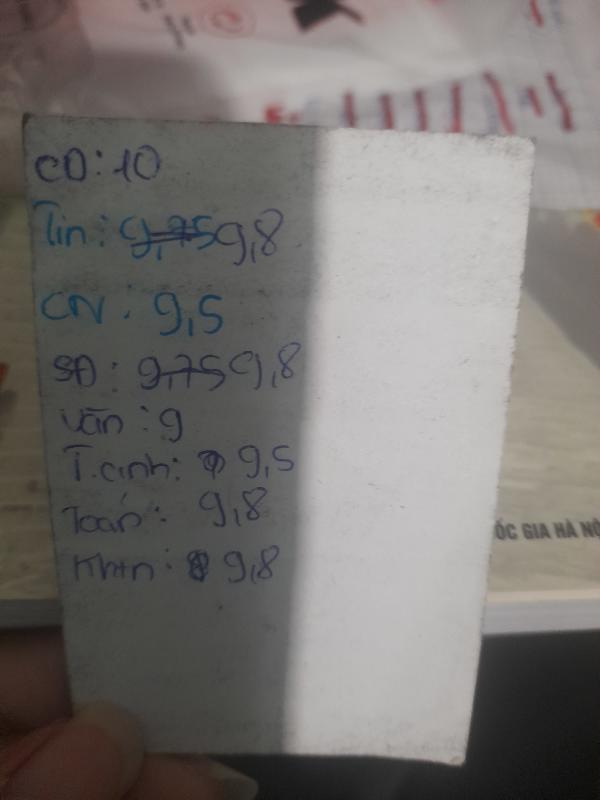 CD: 10
Tin: 9,75 9,8
CN: 9,5
SĐ: 9,75 9,8
Văn: 9
T.anh: 9,5
Toán: 9,8
Khtn: 9,8
ỐC GIA HÀ NỘ